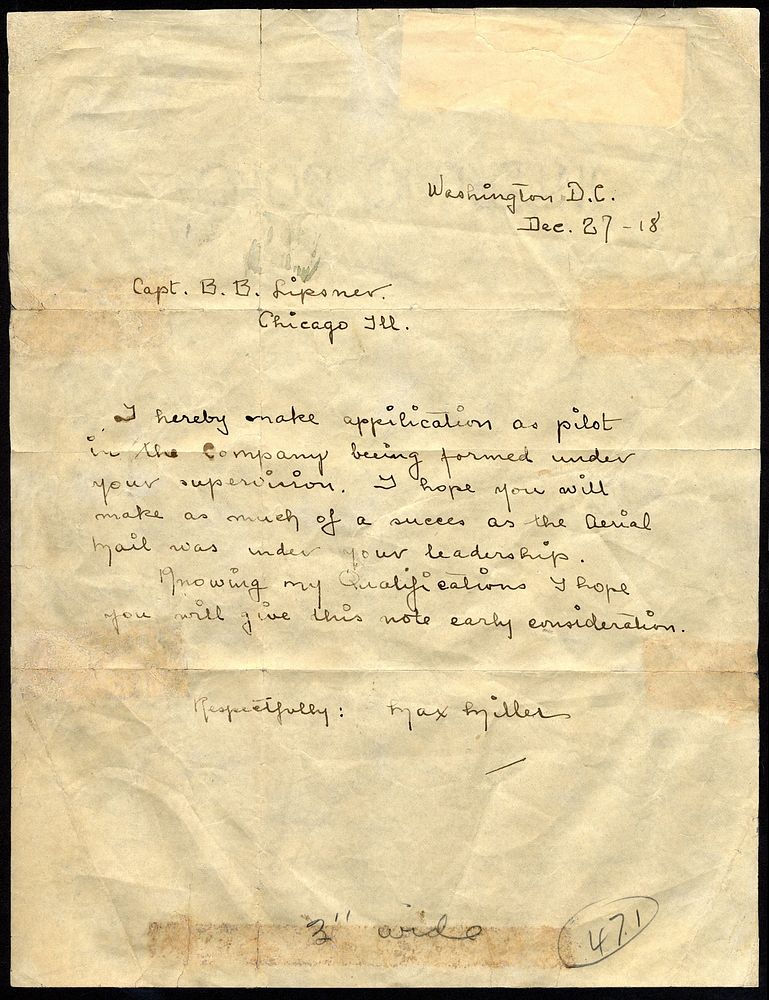 Washington D.C.
Dec. 27-18
Capt. B. B. Lipsner.
Chicago Ill.
I hereby make appilication as pilot
in the Company beeing formed under
your supervision. I hope you will
make as much of a succes as the Aerial
Mail was under your leadership.
Knowing my Qualifications I hope
you will give this note early consideration.
Respectfully: Max Miller
3" wide
471